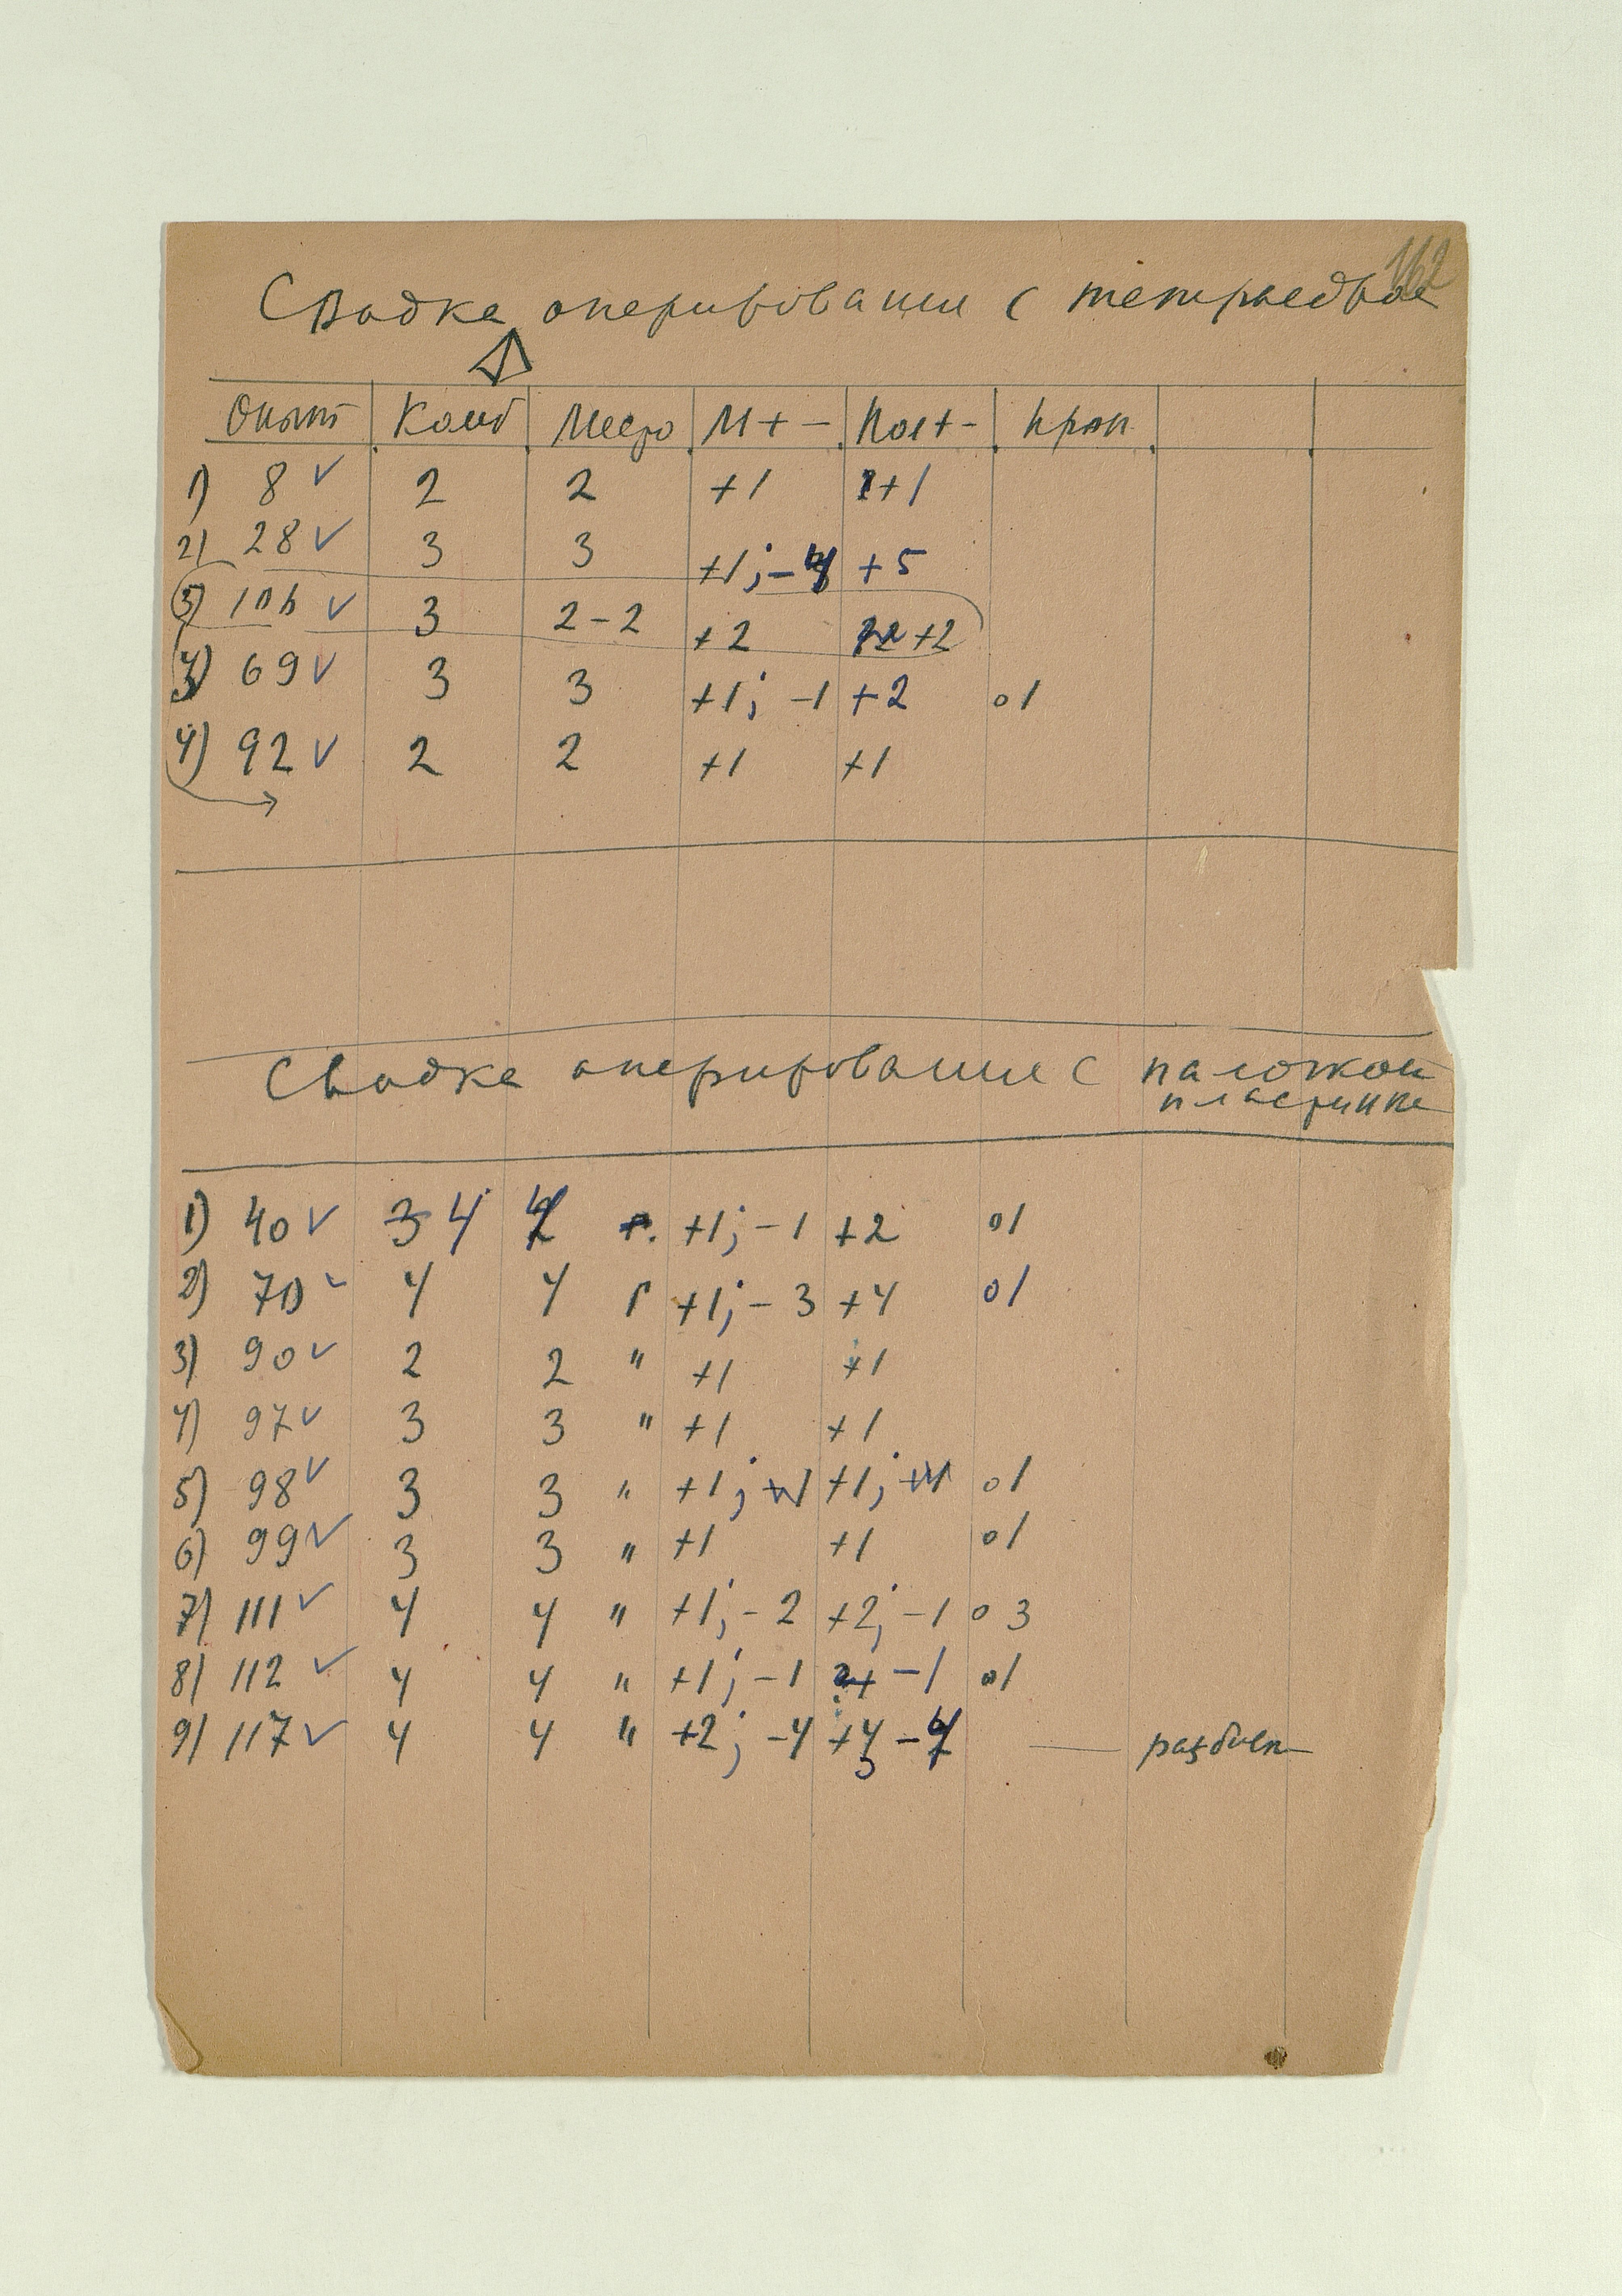 162
Сводка оперирования с тетраедром
Опыт Комб Место М + – Пол + – Кран
1) 8 ✓ 2 2 +1 +1
2) 28 ✓ 3 3 +1; – +5
106 ✓ 3 2–2 +2 +2
3) 69 ✓ 3 3 +1; –1 +2 01
4) 92 ✓ 2 2 +1 +1
Сводка оперирования с палочкой
пластинка
1) 40 ✓ 3 4 4 +1; –1 +2 01
2) 70 ✓ 4 4 +1; –3 +4 01
3) 90 ✓ 2 2 " +1 +1
4) 97 ✓ 3 3 " +1 +1
5) 98 ✓ 3 3 " +1; +1; 01
6) 99 ✓ 3 3 " +1 +1 01
7) 111 ✓ 4 4 " +1; –2 +2; –1 03
8) 112 ✓ 4 4 " +1; –1 –1 01
9) 117 ✓ 4 4 " +2; –4 –4 —